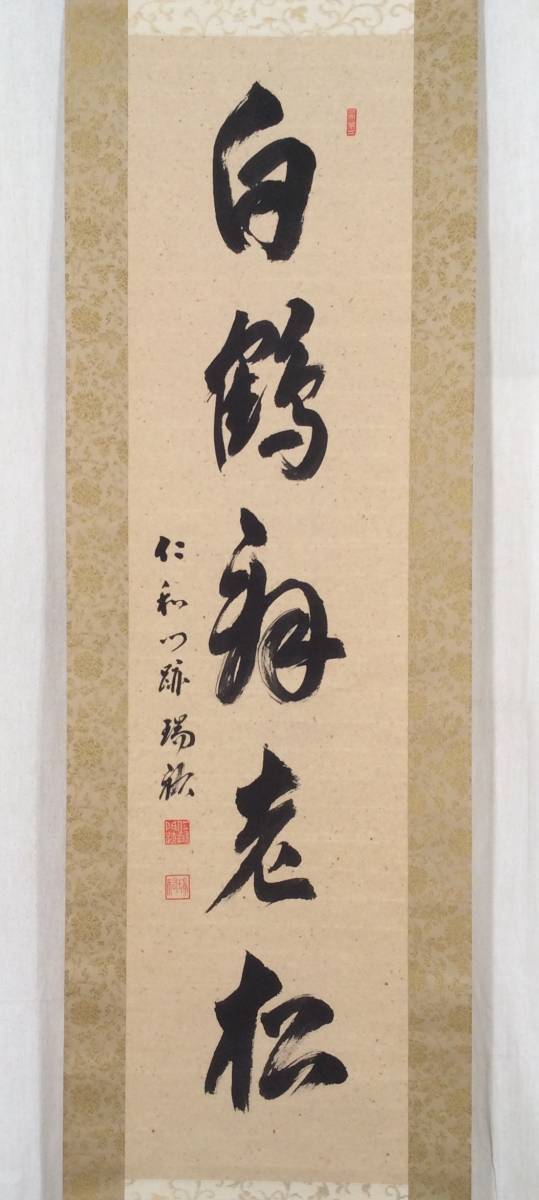 白鶴老松
仁和門跡 瑞祐